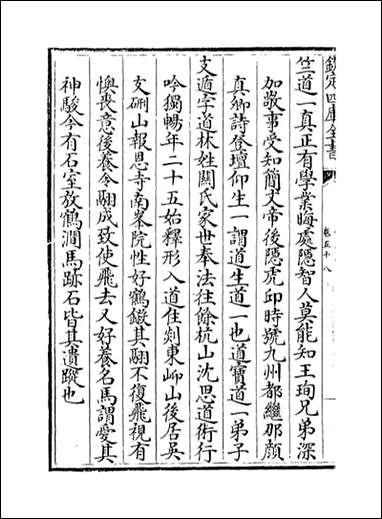 欽定四庫全書
卷五十八
竺道一真正有學業晦處隱智人莫能知王珣兄弟深
加敬事受知簡文帝後隱虎邱時號九州都維那顔
真卿詩登壇仰生一謂道生道一也道寶道一弟子
支遁字道林姓關氏家世奉法往餘杭山沈思道術行
吟獨暢年二十五始釋形入道住剡東岬山後居吳
支硎山報恩寺南峯院性好鶴鎩其翮不復飛視有
懊喪意後養令翮成致使飛去又好養名馬謂愛其
神駿今有石室放鶴澗馬跡石皆其遺蹤也